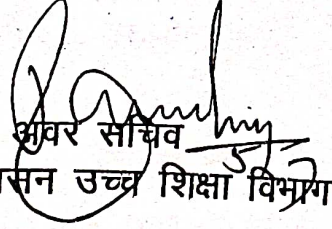 अवर सचिव
सन उच्च शिक्षा विभाग